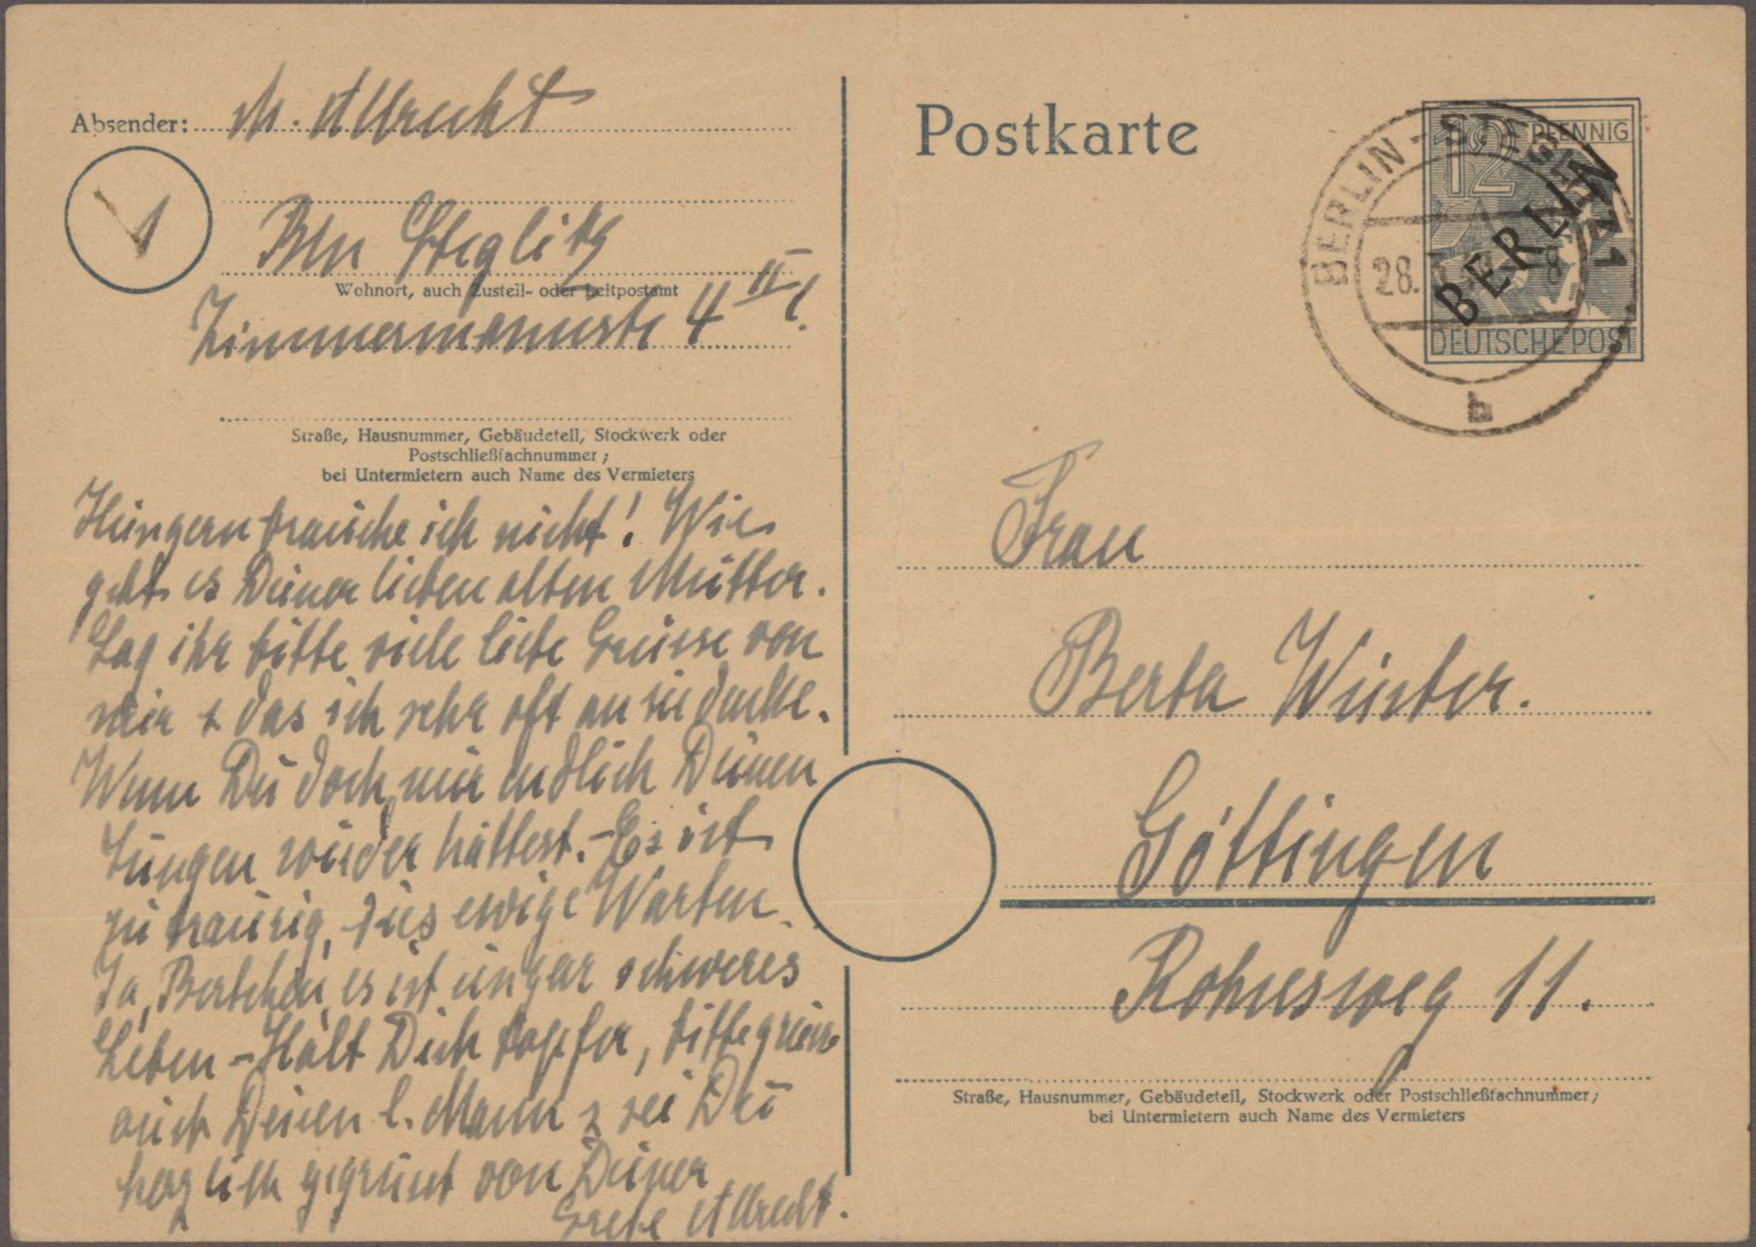 Absender: M. Albrecht
1
Bln Steglitz
Wohnort, auch Zustell- oder Leitpostamt
Zimmermannstr 4 II l.
Straße, Hausnummer, Gebäudeteil, Stockwerk oder
Postschließfachnummer;
bei Untermietern auch Name des Vermieters
Hungern brauche ich nicht! Wie
geht es Deiner lieben alten Mutter.
Sag ihr bitte viele liebe Grüsse von
mir + das ich sehr oft an sie denke.
Wenn Du doch nur endlich Deinen
Jungen wieder hättest. - Es ist
zu traurig, dies ewige Warten.
Ja, Bertchen, es ist ein gar schweres
Leben - Halt Dich tapfer, bitte grüsse
auch Deinen l. Mann & sei Du
herzlich gegrüsst von Deiner
Grete Albrecht.
Postkarte
12 PFENNIG
BERLIN
DEUTSCHE POST
BERLIN-STEGLITZ 1
28.
8
b
Frau
Berta Winter.
Göttingen
Rohnsweg 11.
Straße, Hausnummer, Gebäudeteil, Stockwerk oder Postschließfachnummer;
bei Untermietern auch Name des Vermieters